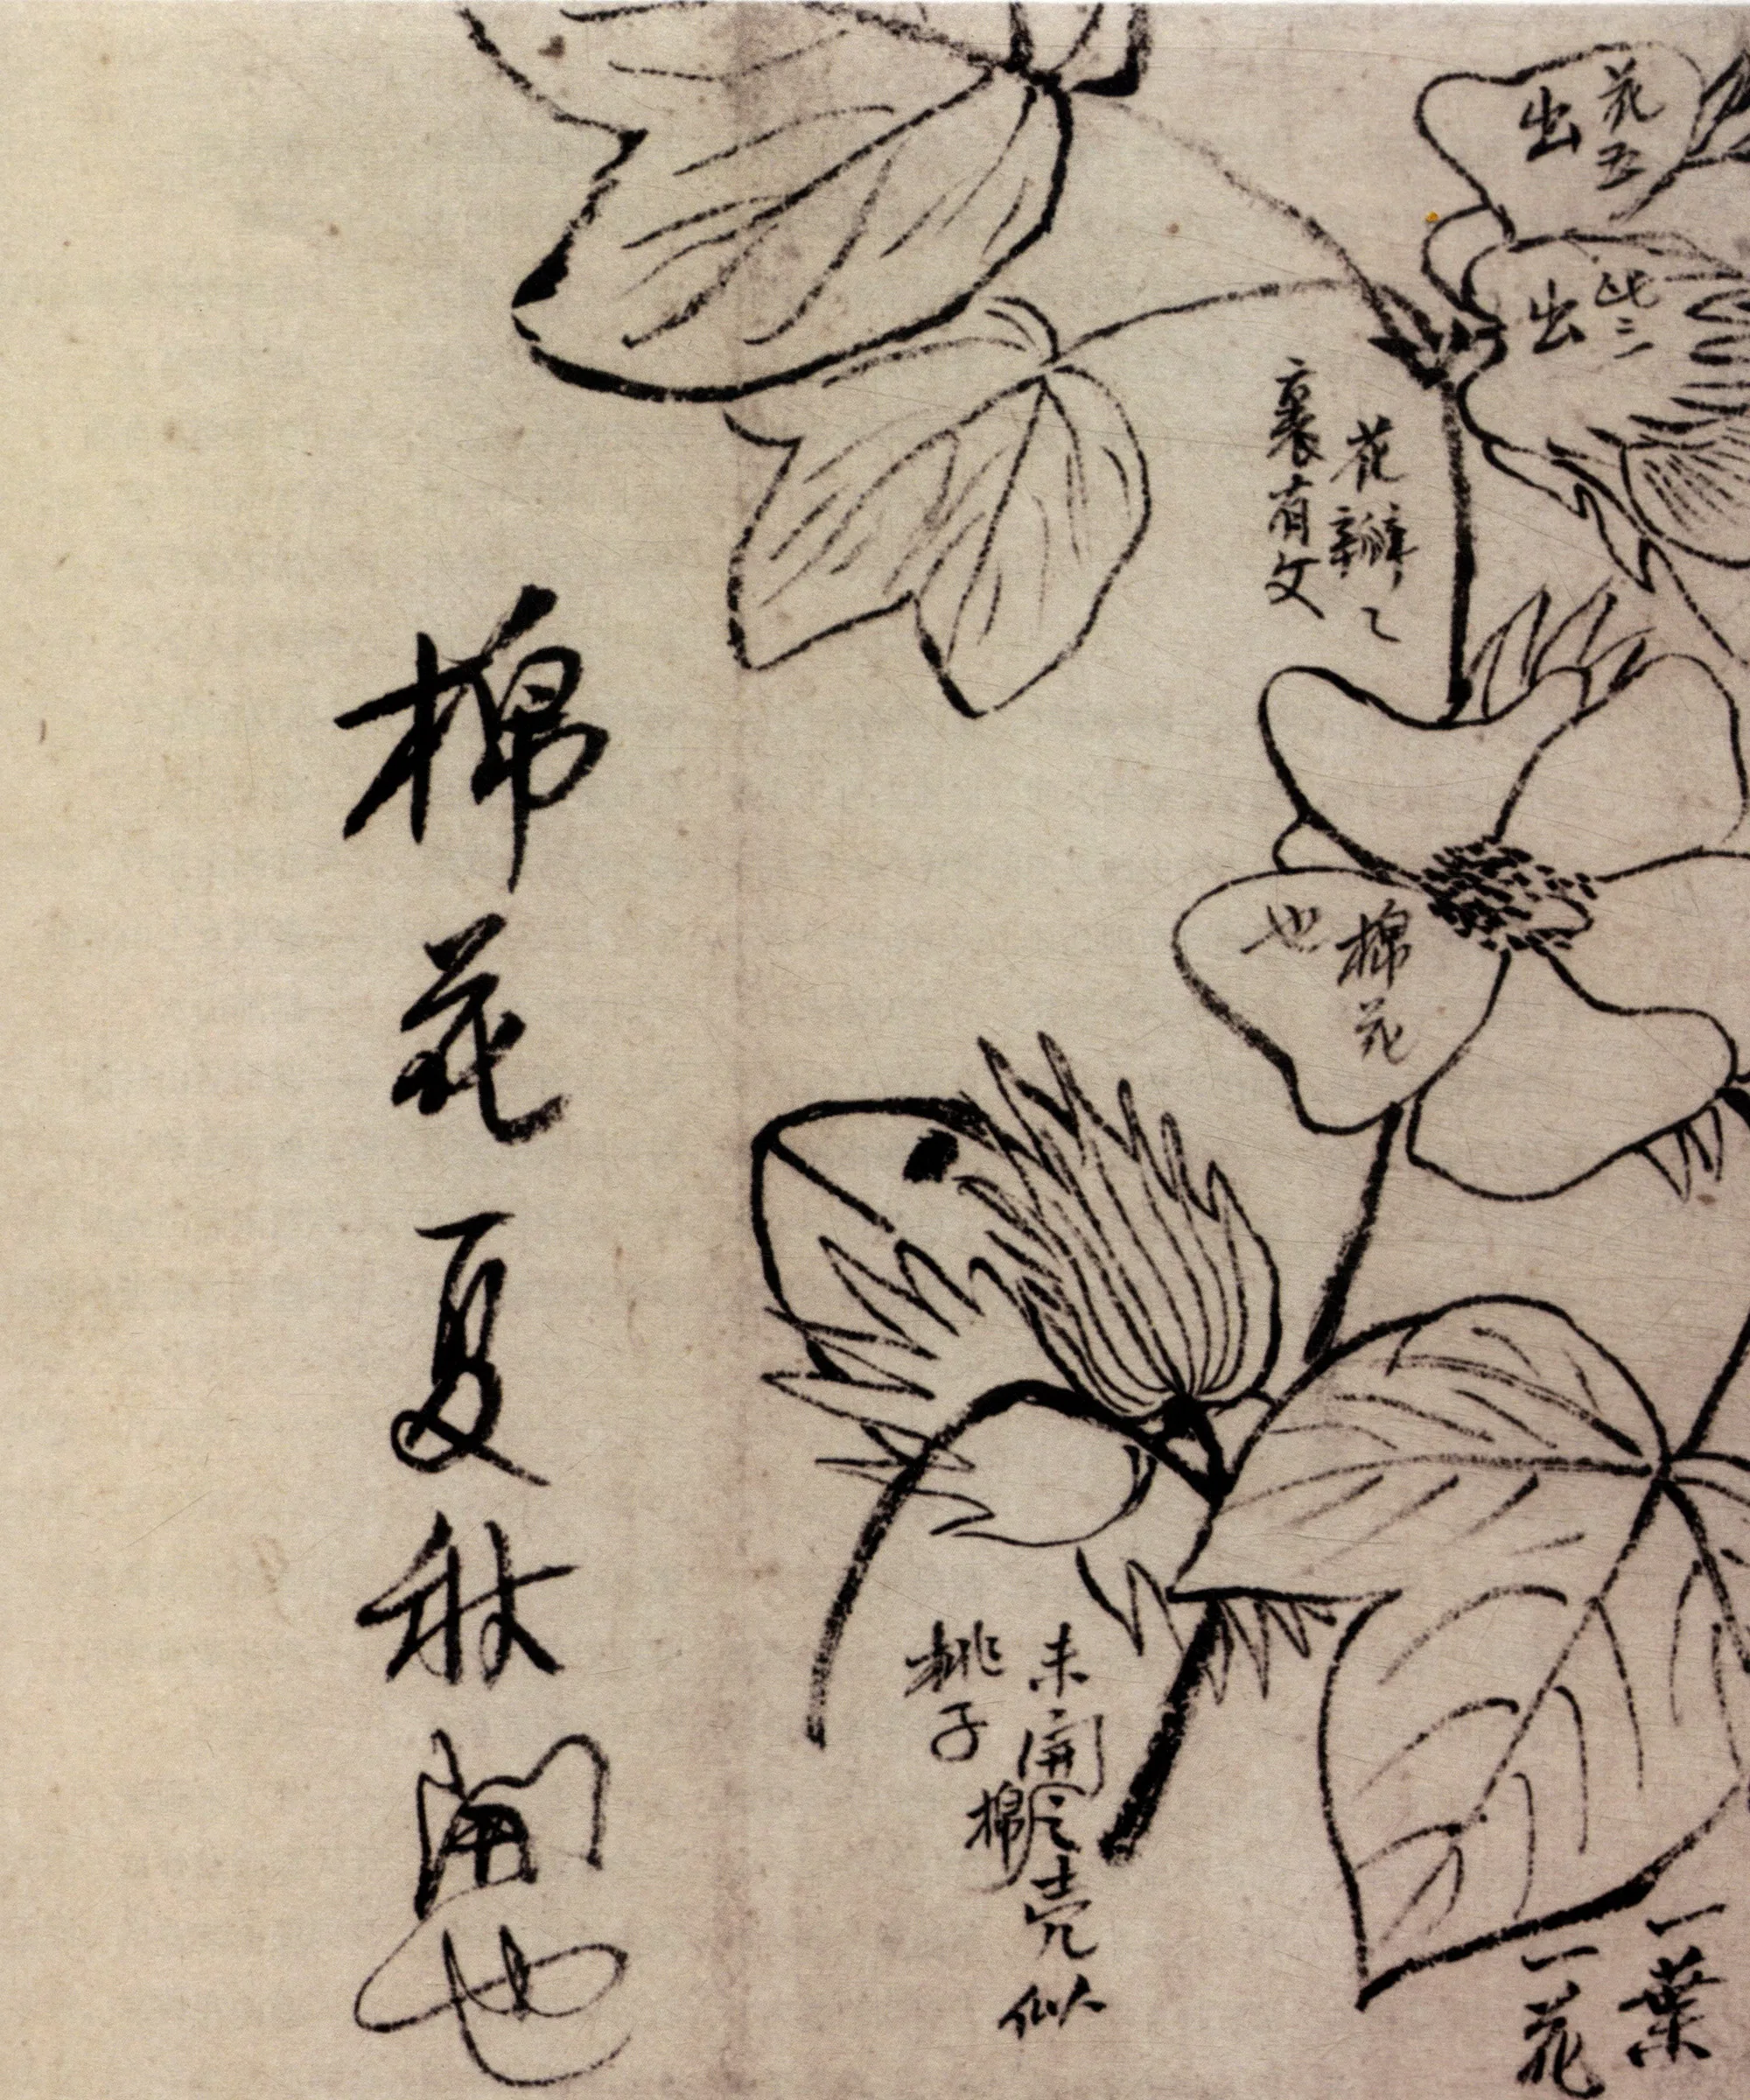 花五
出
此二
出
花瓣〻
裏有文
棉花
也
一葉
一花
未開棉壳似
桃子
棉花夏秋開也